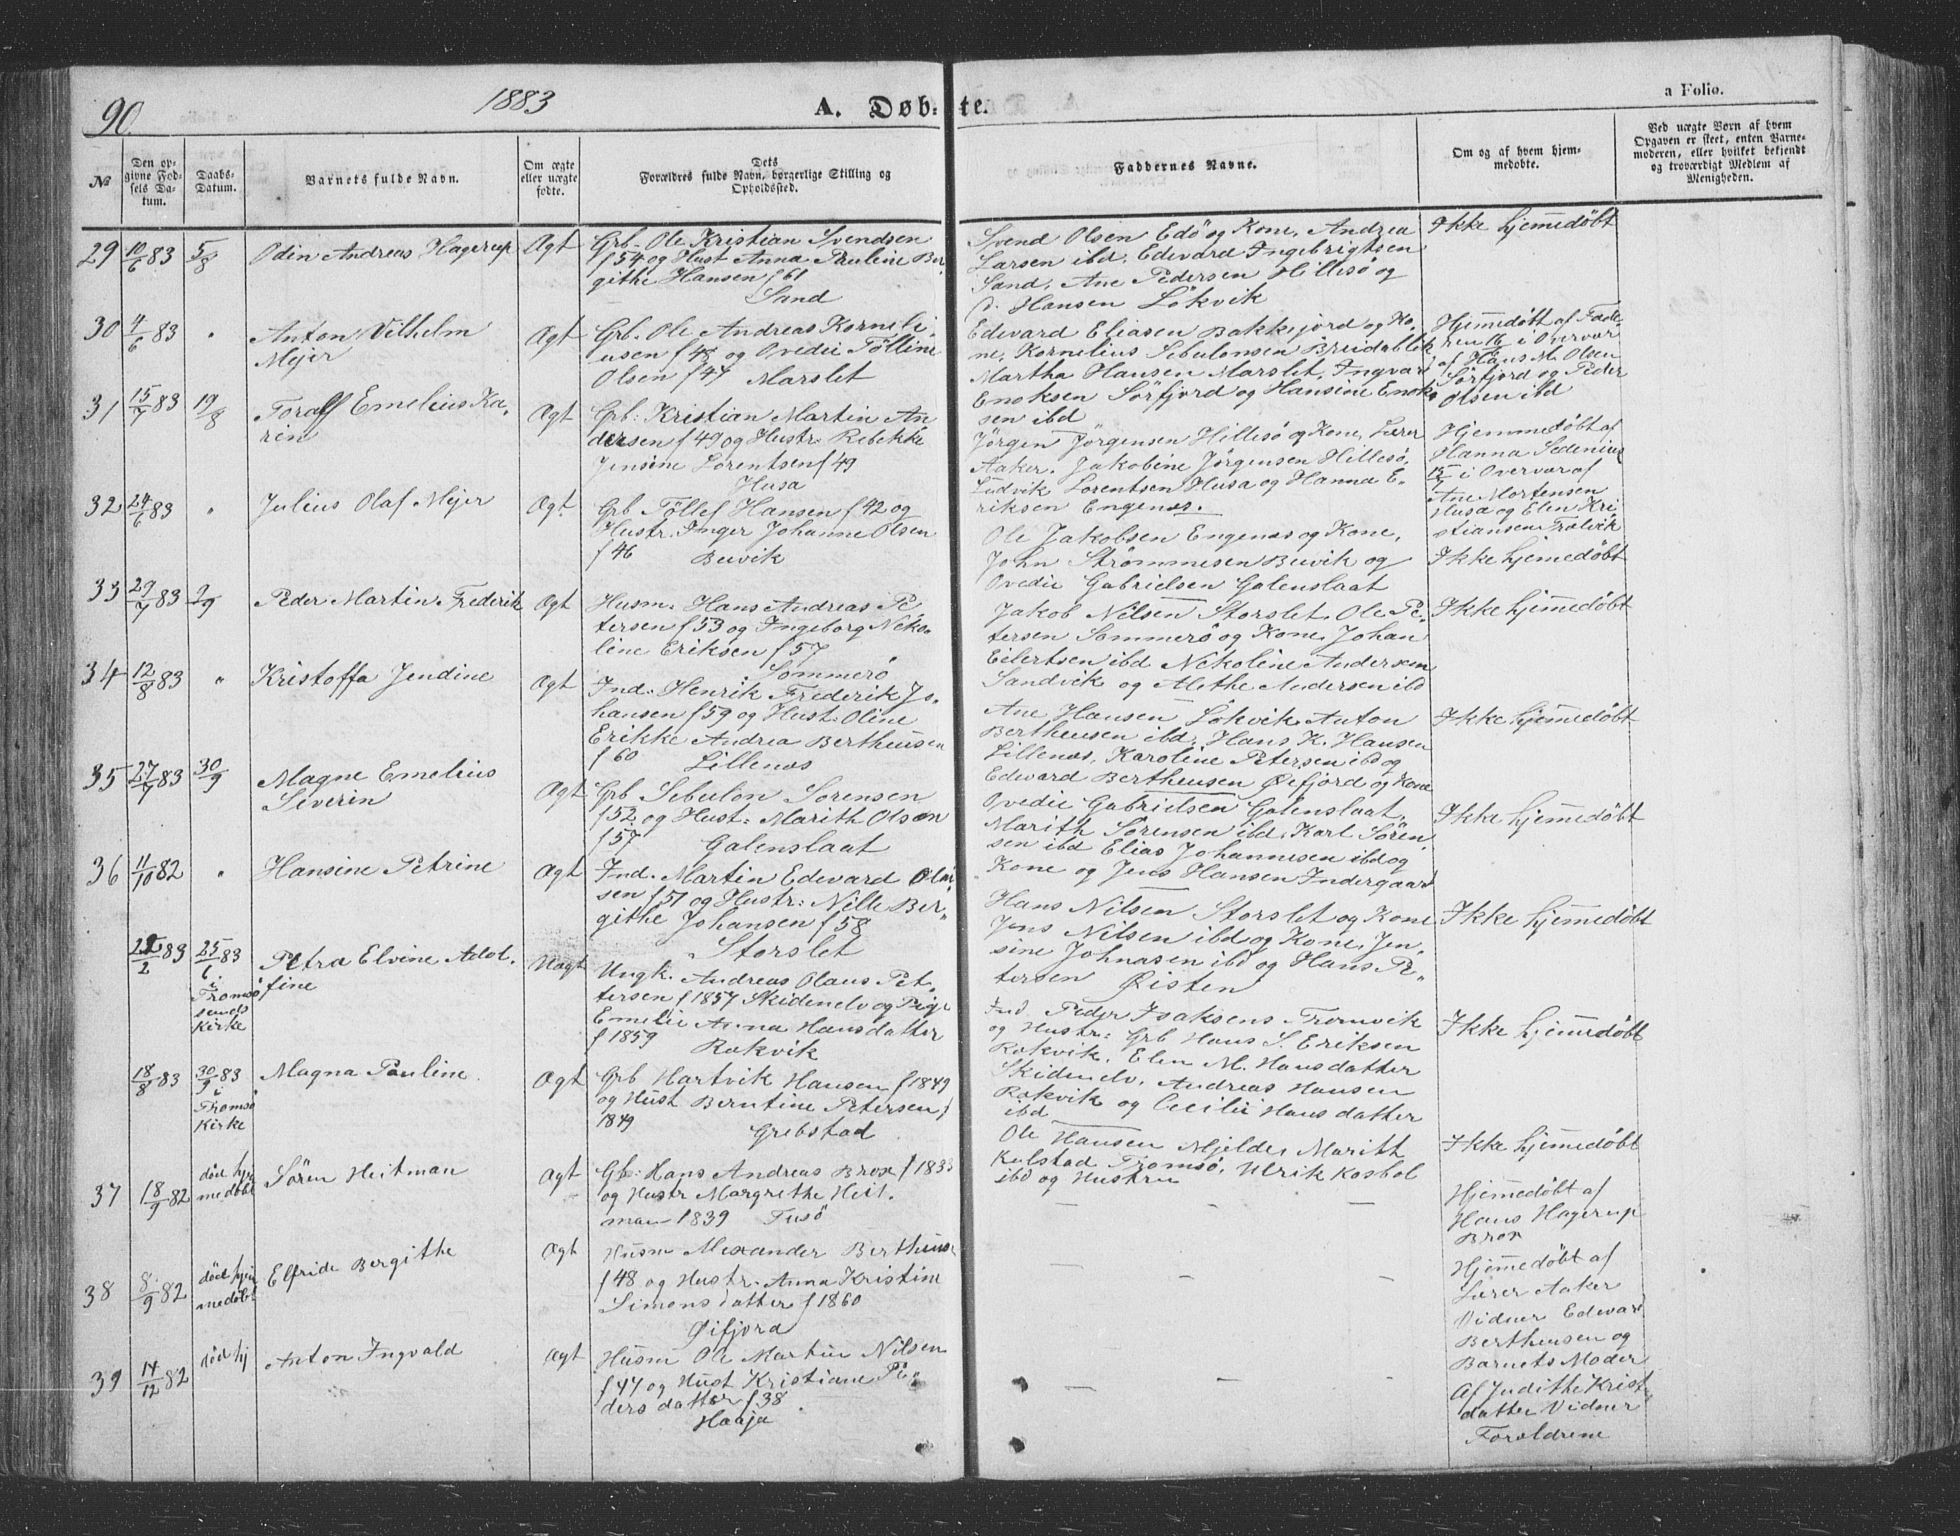 90
1883
A. Døb-te.
a Folio.
№
Den op-
givne Fød-
sels Da-
tum.
Daabs-
Datum.
Barnets fulde Navn.
Om ægte
eller uægte
fødte.
Dets
Forældres fulde Navn, borgerlige Stilling og
Opholdssted.
Faddernes Navne.
Om og af hvem hjem-
medøbte.
Ved uægte Børn af hvem
Opgaven er skeet, enten Barne-
moderen, eller hvilket bekjendt
og troværdigt Medlem af
Menigheden.
29 10/6 83 5/8 Odin Andreas Hagerup Ægt
Grb. Ole Kristian Svendsen
f 54 og Hust Anna Pauline Ber-
githe Hansen f 61
Sand
Svend Olsen Edø og Kone, Andrea
Larsen ibd, Edevard Ingebrigtsen
Sand, Ane Pedersen Hillesø og
Hansen Løkvik
Ikke hjemmedøbt
30 4/6 83 " Anton Vilhelm
Mejer
Ægt
Grb. Ole Andreas Korneli-
usen f 48 og Ovedie Tölline
Olsen f 47 Marslet
Edevard Eliasen Bakkejord og Ko-
ne, Kornelius Sebulonsen Breidablik
Martha Hansen Marslet, Ingvard
Enoksen Sörfjord og Hansine Enok-
sen ibd
Hjemmedøbt af Fade-
ren 16/6 i Overvær
af Hans M. Olsen
Sörfjord og Peder
Olsen ibd
31 15/7 83 19/8 Toralf Emelius Ka-
rin
Ægt
Grb. Kristian Martin An-
dersen f 49 og Hustr. Rebekke
Jensine Lorentsen f 49
Husa
Jörgen Jörgensen Hillesö og Kone, Lærer
Aaker. Jakobine Jörgensen Hillesö,
Ludvik Lorentsen Husa og Hanna E-
riksen Engenæs.
Hjemmedøbt af
Hanna Sedenius
15/7 i Overvær af
Ane Mortensen
Husa og Elen Kri-
stiansen Trælvik
32 24/6 83 " Julius Olaf Mejer Ægt
Grb Töllef Hansen f 42 og
Hustr. Inger Johanne Olsen
f 46 Buvik
Ole Jakobsen Engenæs og Kone,
John Strömmesen Buvik og
Ovedie Gabrielsen Galenslaat
Ikke hjemmedøbt
33 29/7 83 2/9 Peder Martin Frederik Ægt
Husm. Hans Andreas Pe-
tersen f 53 og Ingeborg Neko-
line Eriksen f 57
Sommerö
Jakob Nilsen Storslet, Ole Pe-
tersen Sommerö og Kone, Johan
Eilertsen ibd Nekoline Andersen
Sandvik og Alethe Andersen ibd
Ikke hjemmedøbt
34 12/8 83 " Kristoffa Jendine Ægt
Ind. Henrik Frederik Jo-
hansen f 59 og Hust: Oline
Erikke Andrea Bertheusen
f 60 Lillenæs
Ane Hansen Lökvik, Anton
Bertheusen ibd, Hans K. Hansen
Lillenæs, Karoline Petersen ibd og
Edevard Bertheusen Øifjord og Kone
Ikke hjemmedøbt
35 27/7 83 30/9 Magne Emelius
Severin
Ægt
Grb Sebulon Sörensen
f 52 og Hust: Marith Olsen
f 57 Galenslaat
Ovedie Gabrielsen Galenslaat,
Marith Sörensen ibd, Karl Sören-
sen ibd Elias Johannesen ibd og
Kone og Jens Hansen Indergaard
Ikke hjemmedøbt
36 11/10 82 " Hansine Petrine Ægt
Ind. Martin Edevard Olai-
sen f 51 og Hustr: Nille Ber-
githe Johansen f 58
Storslet
Hans Nilsen Storslet og Kone
Jens Nilsen ibd og Kone, Jen-
sine Johnasen ibd og Hans Pe-
tersen Øisten
Ikke hjemmedøbt
22/2 83 25/6 83
i
Tromsö
sunds
Kirke
Petra Elvine Adol-
fine
Uægt
Ungk. Andreas Olaus Pet-
tersen f 1857 Skidenelv og Pige
Emelie Anna Hansdatter
f 1859 Rakvik
Ind Peder Isaksens Tromvik
og Hustr: Grb Hans S. Eriksen
Rakvik. Elen M. Hansdatter
Skidenelv, Andreas Hansen
Rakvik og Cecilie Hansdatter
ibd
Ikke hjemmedøbt
18/8 83 30/9 83
i
Tromsö
Kirke
Magna Pauline Ægt
Grb Hartvik Hansen f 1849
og Hust Berntine Petersen f
1849 Grebstad
Ole Hansen Mjelde, Marith
Kulstad Tromsö, Ulrik Kasbol
ibd og Hustru
Ikke hjemmedøbt
37 18/9 82 död hje
medöbt Sören Heitman Ægt
Gb: Hans Andreas Brox f 1833
og Hustr Margrethe Heit-
man 1839 Tusö
Hjemmedöbt af
Hans Hagerup
Brox
38 8/9 82 död hjem
medöbt Elfride Bergithe Ægt
Husm Alexander Bertheus-
f 48 og Hustr. Anna Kristine
Simonsdatter f 1860
Øifjord
Hjemmedøbt af
Lærer Aaker
Vidner Edevard
Bertheusen og
Barnets Moder
39 14/12 82 död hj Anton Ingvald Ægt
Husm Ole Martin Nilsen
f 47 og Hust Kristiane Pe-
dersdatter f 38
Haaja
Af Judithe Krist-
datter Vidner
Forældrene